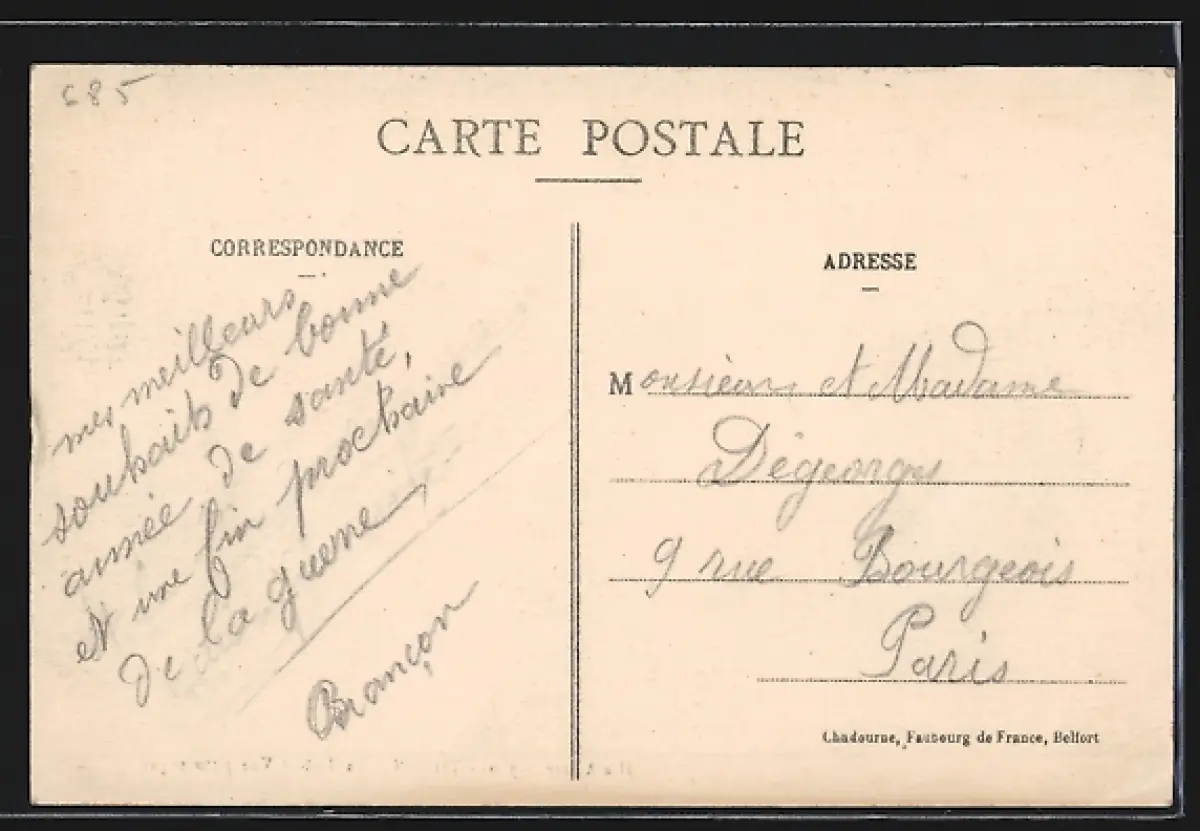 685
CARTE POSTALE
CORRESPONDANCE
mes meilleurs
souhaits de bonne
année de santé,
et une fin prochaine
de la guerre,
Brançon
ADRESSE
Monsieur et Madame
Dégeorges
9 rue Bourgeois
Paris
Chadourne, Faubourg de France, Belfort